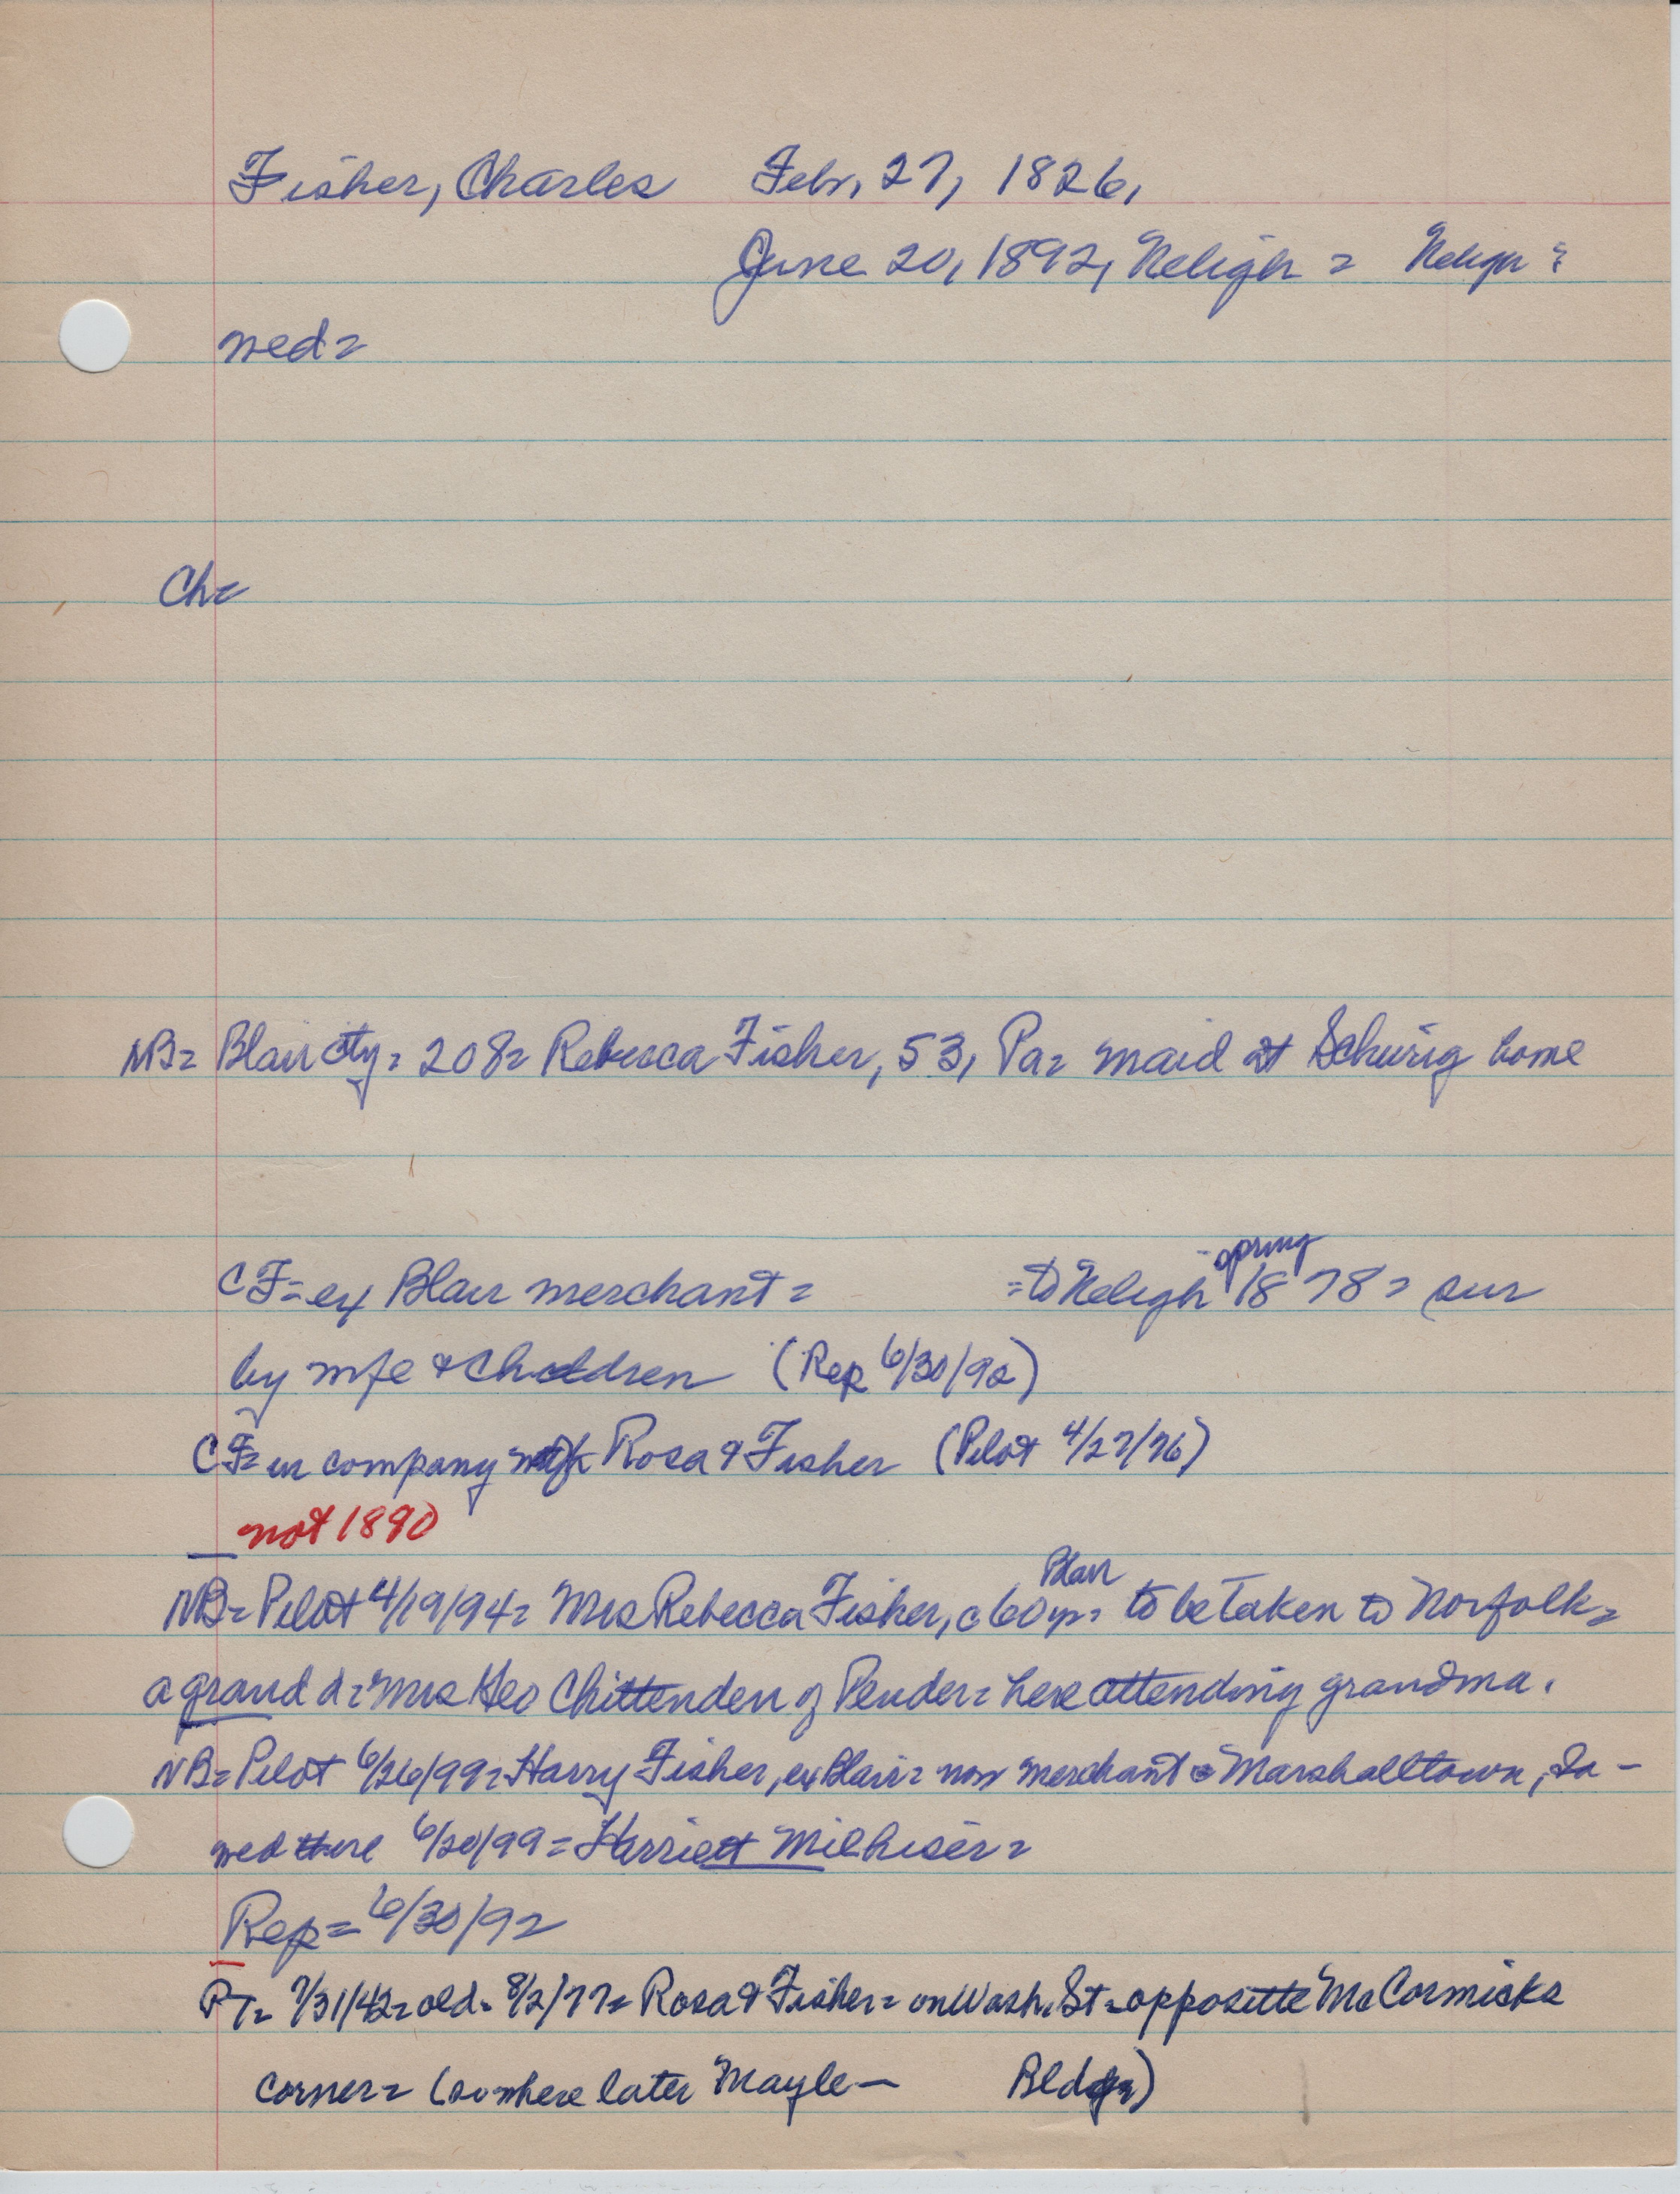 Fisher, Charles Febr. 27, 1826,
June 20, 1892, Neligh = Neligh =
wed =
Ch =
NB = Blair city = 208 = Rebecca Fisher, 53, Pa = maid at Schurig home
spring
CF = ex Blair merchant = = to Neligh 1878 = sur
by wife & Children (Rep 6/30/92)
CF = in company with Rosa & Fisher (Pilot 4/27/76)
not 1890
Blair
NB = Pilot 4/19/94 = Mrs Rebecca Fisher, c 60 yr = to be taken to Norfolk =
a grand d = Mrs Geo Chittenden of Pender = here attending grandma.
NB = Pilot 6/26/99 = Harry Fisher, ex Blair = now merchant @ Marshalltown, Ia -
wed there 6/20/99 = Harriett Milhiser =
Rep = 6/30/92
PT = 7/31/42 = old = 8/2/77 = Rosa & Fisher = on Wash. St = opposite McCormicks
corner = (so where later Mayle — Bldg =)